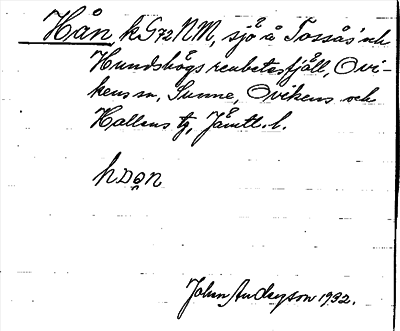 Hån kG72NM, sjö å Tossås' och
Hundshögs renbetesfjäll, Ovi-
kens sn, Sunne, Ovikens och
Hallens tg, Jämtl. l.
John Anderson 1932.